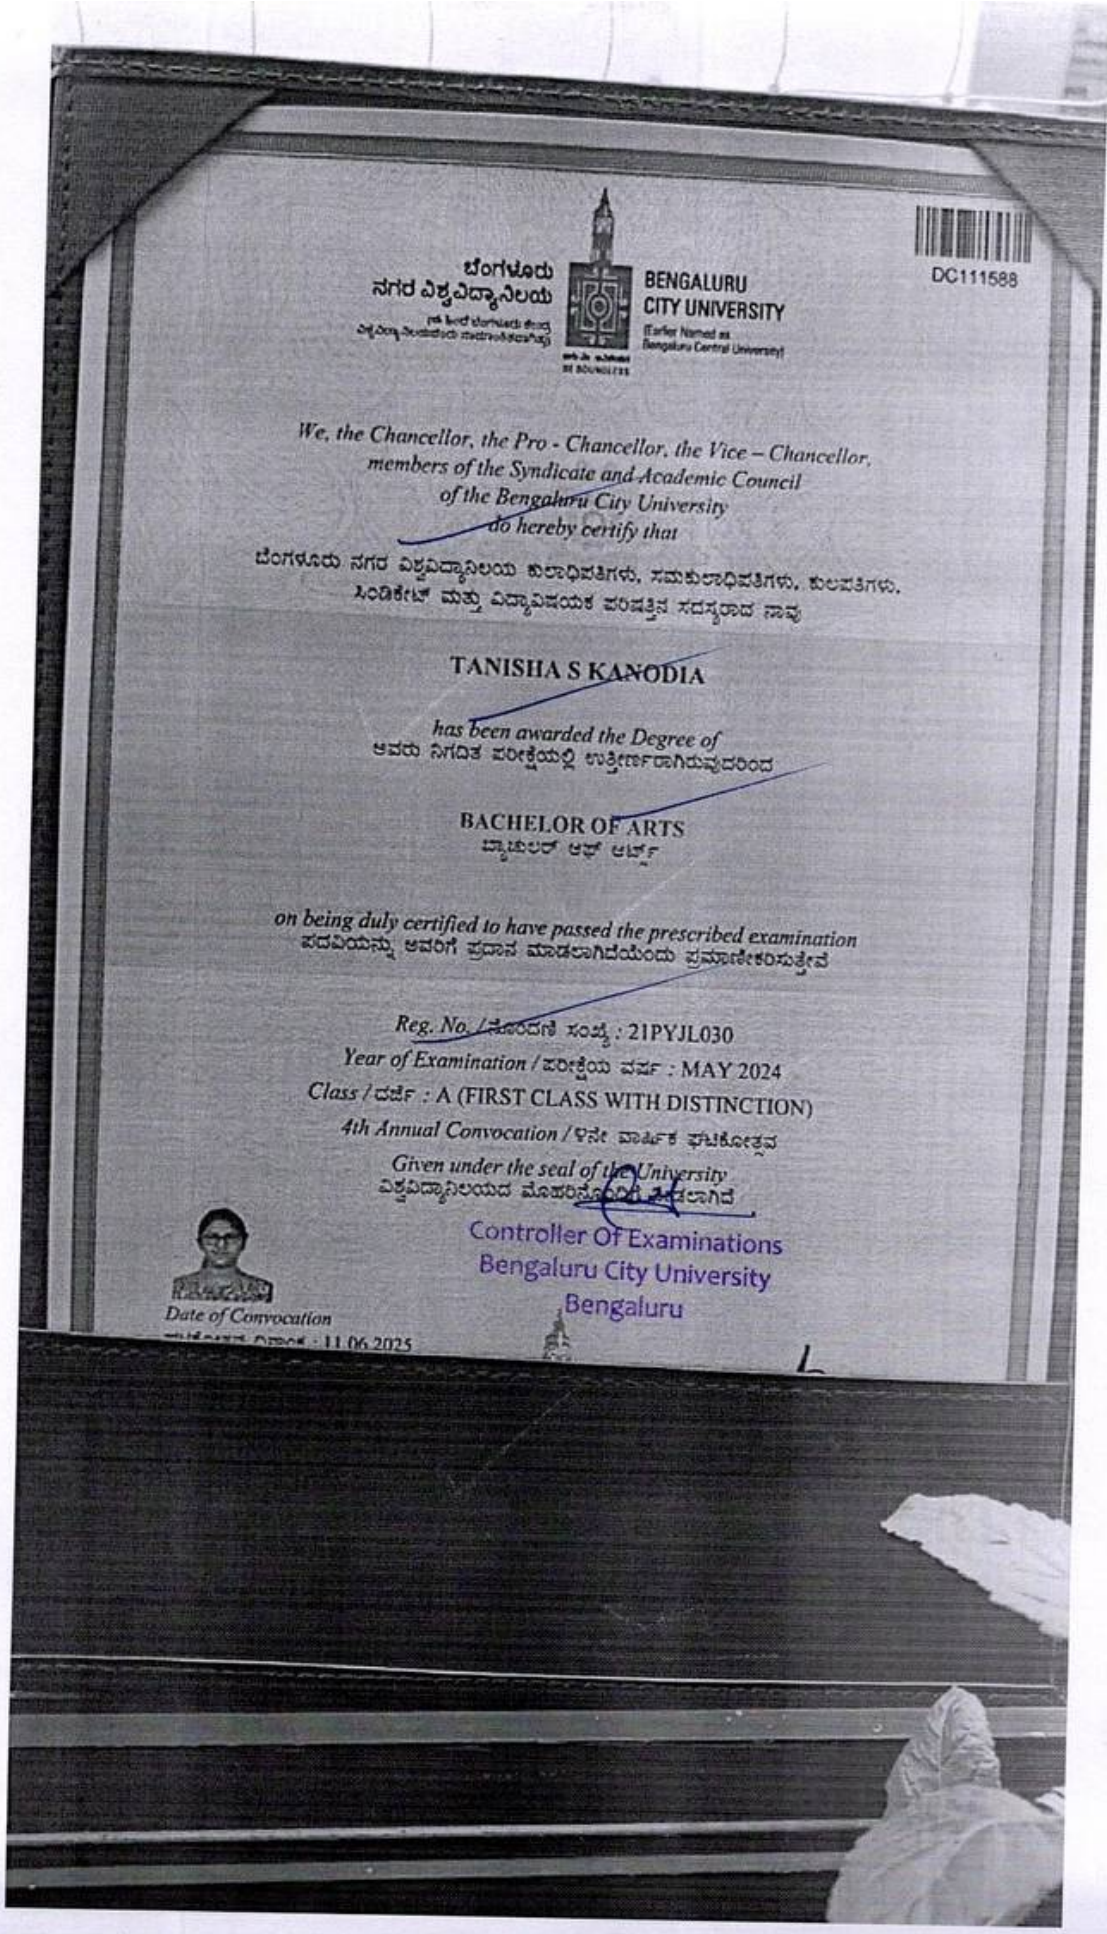 ಬೆಂಗಳೂರು
ನಗರ ವಿಶ್ವವಿದ್ಯಾನಿಲಯ
BENGALURU
CITY UNIVERSITY
(Earlier Named as
Bengaluru Central University)
BE BOUNDLESS
DC111588
We, the Chancellor, the Pro - Chancellor, the Vice – Chancellor,
members of the Syndicate and Academic Council
of the Bengaluru City University
do hereby certify that
ಬೆಂಗಳೂರು ನಗರ ವಿಶ್ವವಿದ್ಯಾನಿಲಯ ಕುಲಾಧಿಪತಿಗಳು, ಸಮಕುಲಾಧಿಪತಿಗಳು, ಕುಲಪತಿಗಳು,
ಸಿಂಡಿಕೇಟ್ ಮತ್ತು ವಿದ್ಯಾವಿಷಯಕ ಪರಿಷತ್ತಿನ ಸದಸ್ಯರಾದ ನಾವು
TANISHA S KANODIA
has been awarded the Degree of
ಅವರು ನಿಗದಿತ ಪರೀಕ್ಷೆಯಲ್ಲಿ ಉತ್ತೀರ್ಣರಾಗಿರುವುದರಿಂದ
BACHELOR OF ARTS
ಬ್ಯಾಚುಲರ್ ಆಫ್ ಆರ್ಟ್ಸ್
on being duly certified to have passed the prescribed examination
ಪದವಿಯನ್ನು ಅವರಿಗೆ ಪ್ರದಾನ ಮಾಡಲಾಗಿದೆಯೆಂದು ಪ್ರಮಾಣೀಕರಿಸುತ್ತೇವೆ
Reg. No. / ನೊಂದಣಿ ಸಂಖ್ಯೆ : 21PYJL030
Year of Examination / ಪರೀಕ್ಷೆಯ ವರ್ಷ : MAY 2024
Class / ದರ್ಜೆ : A (FIRST CLASS WITH DISTINCTION)
4th Annual Convocation / ೪ನೇ ವಾರ್ಷಿಕ ಘಟಿಕೋತ್ಸವ
Given under the seal of the University
ವಿಶ್ವವಿದ್ಯಾನಿಲಯದ ಮೊಹರಿನೊಂದಿಗೆ ನೀಡಲಾಗಿದೆ
Controller Of Examinations
Bengaluru City University
Bengaluru
Date of Convocation
: 11.06.2025